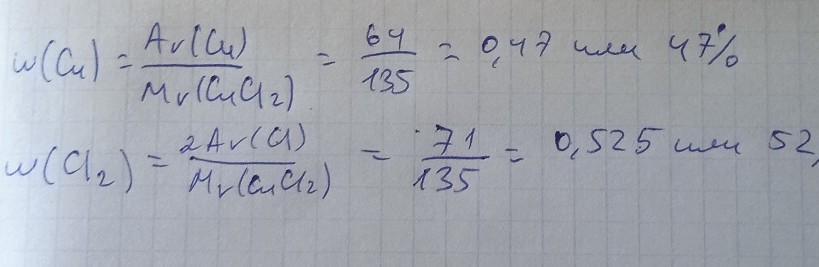 w(Cu) = Ar(Cu) / Mr(CuCl2) = 64 / 135 = 0,47 или 47%
w(Cl2) = 2Ar(Cl) / Mr(CuCl2) = 71 / 135 = 0,525 или 52,